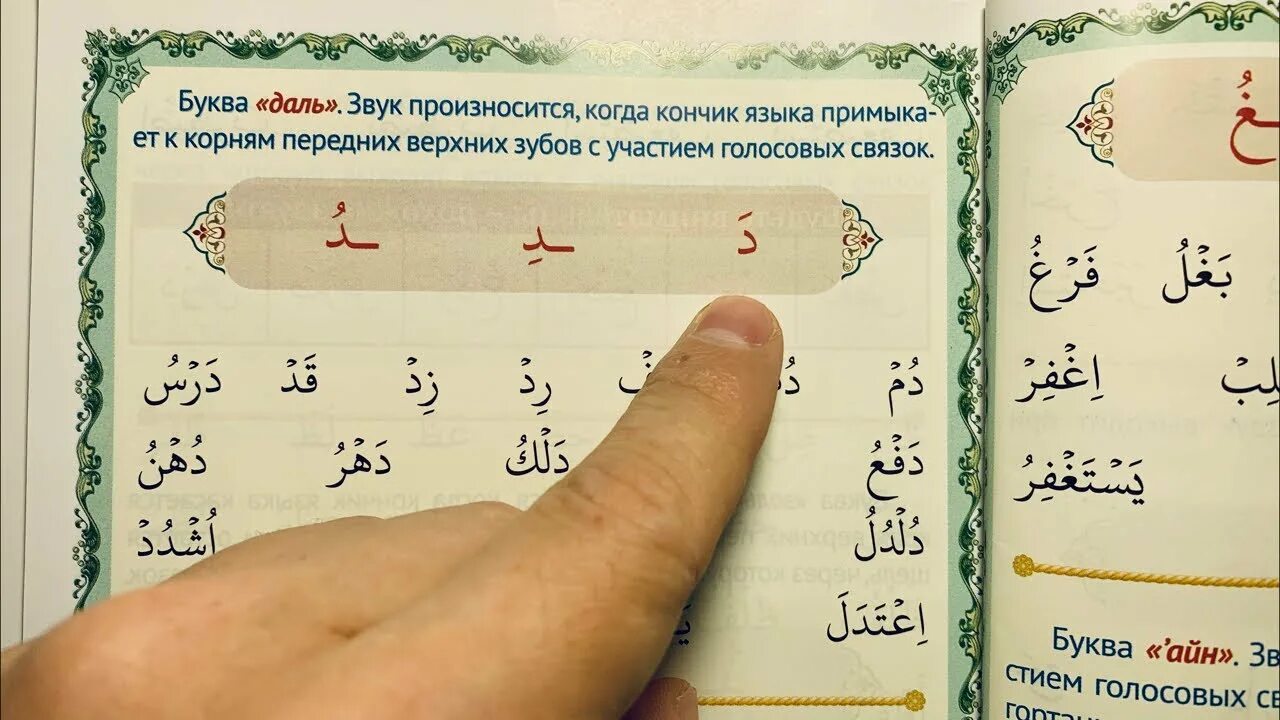 Буква «даль». Звук произносится, когда кончик языка примыка-
ет к корням передних верхних зубов с участием голосовых связок.
دَ ـدِ ـدُ
دُمْ رِدْ زِدْ قَدْ دَرْسُ
دَفْعُ دَلْكُ دَهْرُ دُهْنُ
دُلْدُلُ اُشْدُدْ
اِعْتَدَلَ
ـغُ
بَغْلُ فَرْغُ
اِغْفِرْ
يَسْتَغْفِرُ
Буква «'айн». Зв
стием голосовых св
гортан